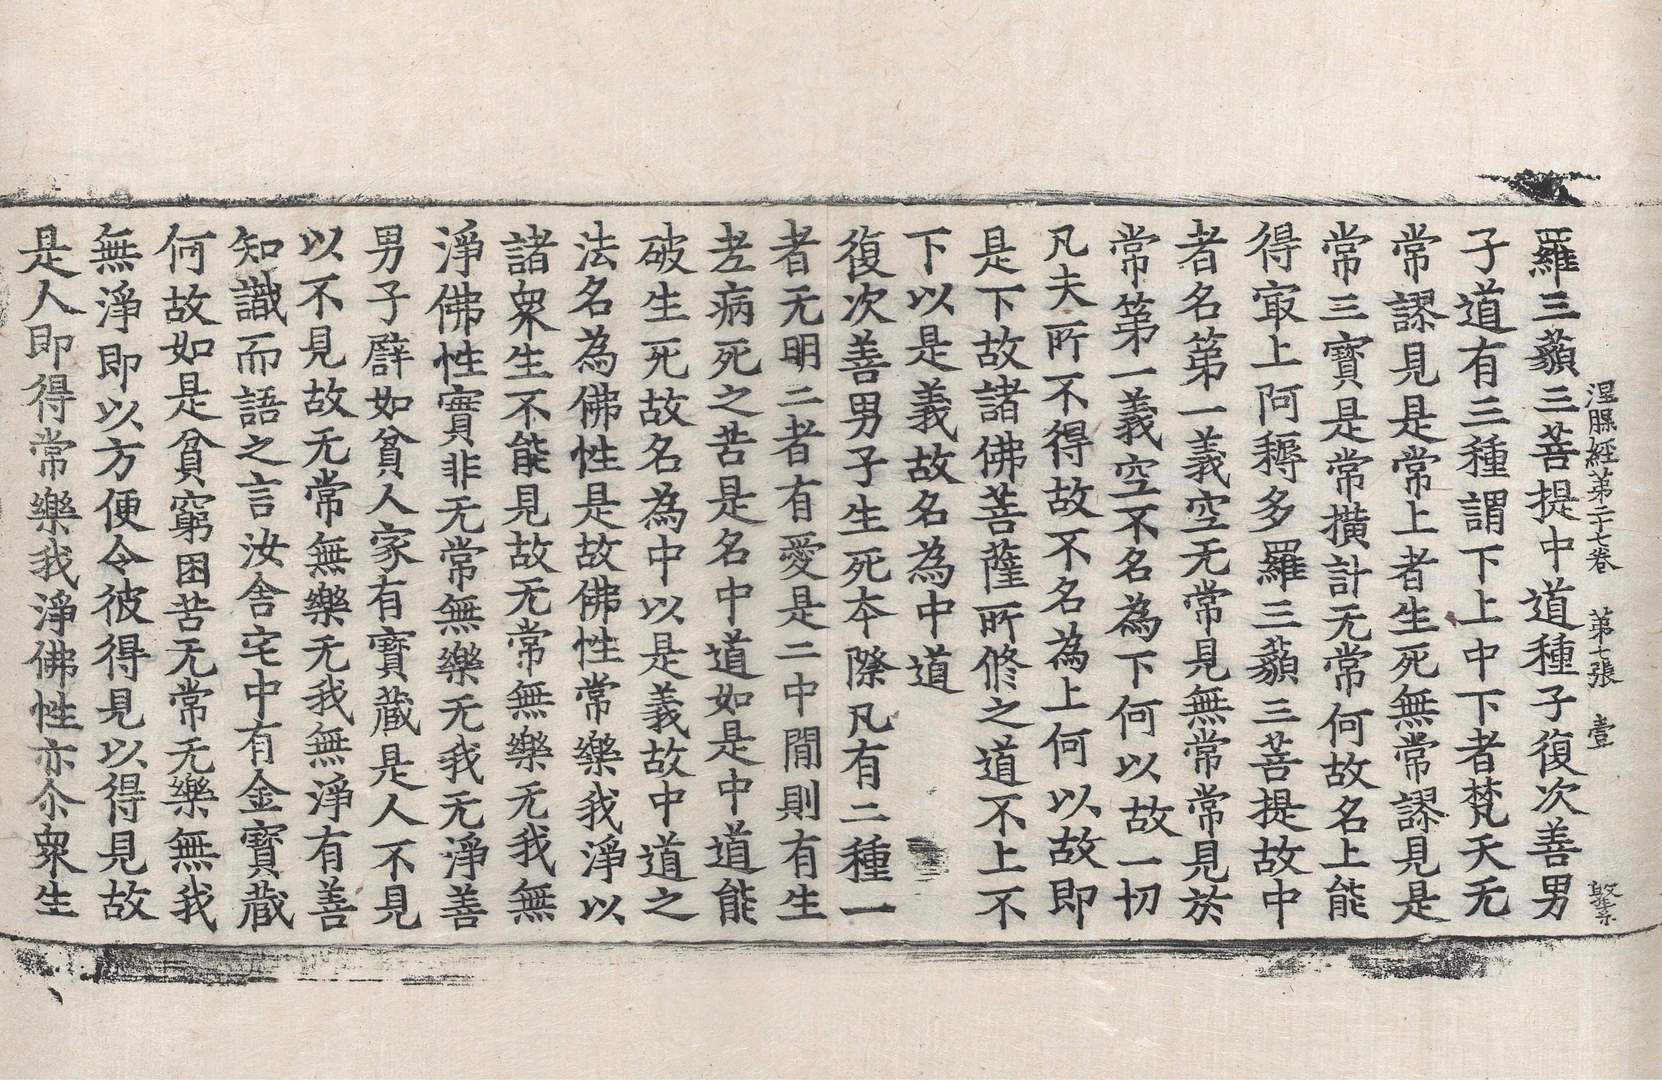 涅槃經第二十七卷 第七張 壹
羅三藐三菩提中道種子復次善男
子道有三種謂下上中下者梵天无
常謬見是常上者生死無常謬見是
常三寶是常橫計无常何故名上能
得冣上阿耨多羅三藐三菩提故中
者名第一義空无常見無常常見於
常第一義空不名為下何以故一切
凡夫所不得故不名為上何以故即
是下故諸佛菩薩所修之道不上不
下以是義故名為中道
復次善男子生死夲際凡有二種一
者无明二者有愛是二中間則有生
老病死之苦是名中道如是中道能
破生死故名為中以是義故中道之
法名為佛性是故佛性常樂我淨以
諸衆生不能見故无常無樂无我無
淨佛性實非无常無樂无我无淨善
男子譬如貧人家有寶藏是人不見
以不見故无常無樂无我無淨有善
知識而語之言汝舍宅中有金寶藏
何故如是貧窮困苦无常无樂無我
無淨即以方便令彼得見以得見故
是人即得常樂我淨佛性亦尒衆生